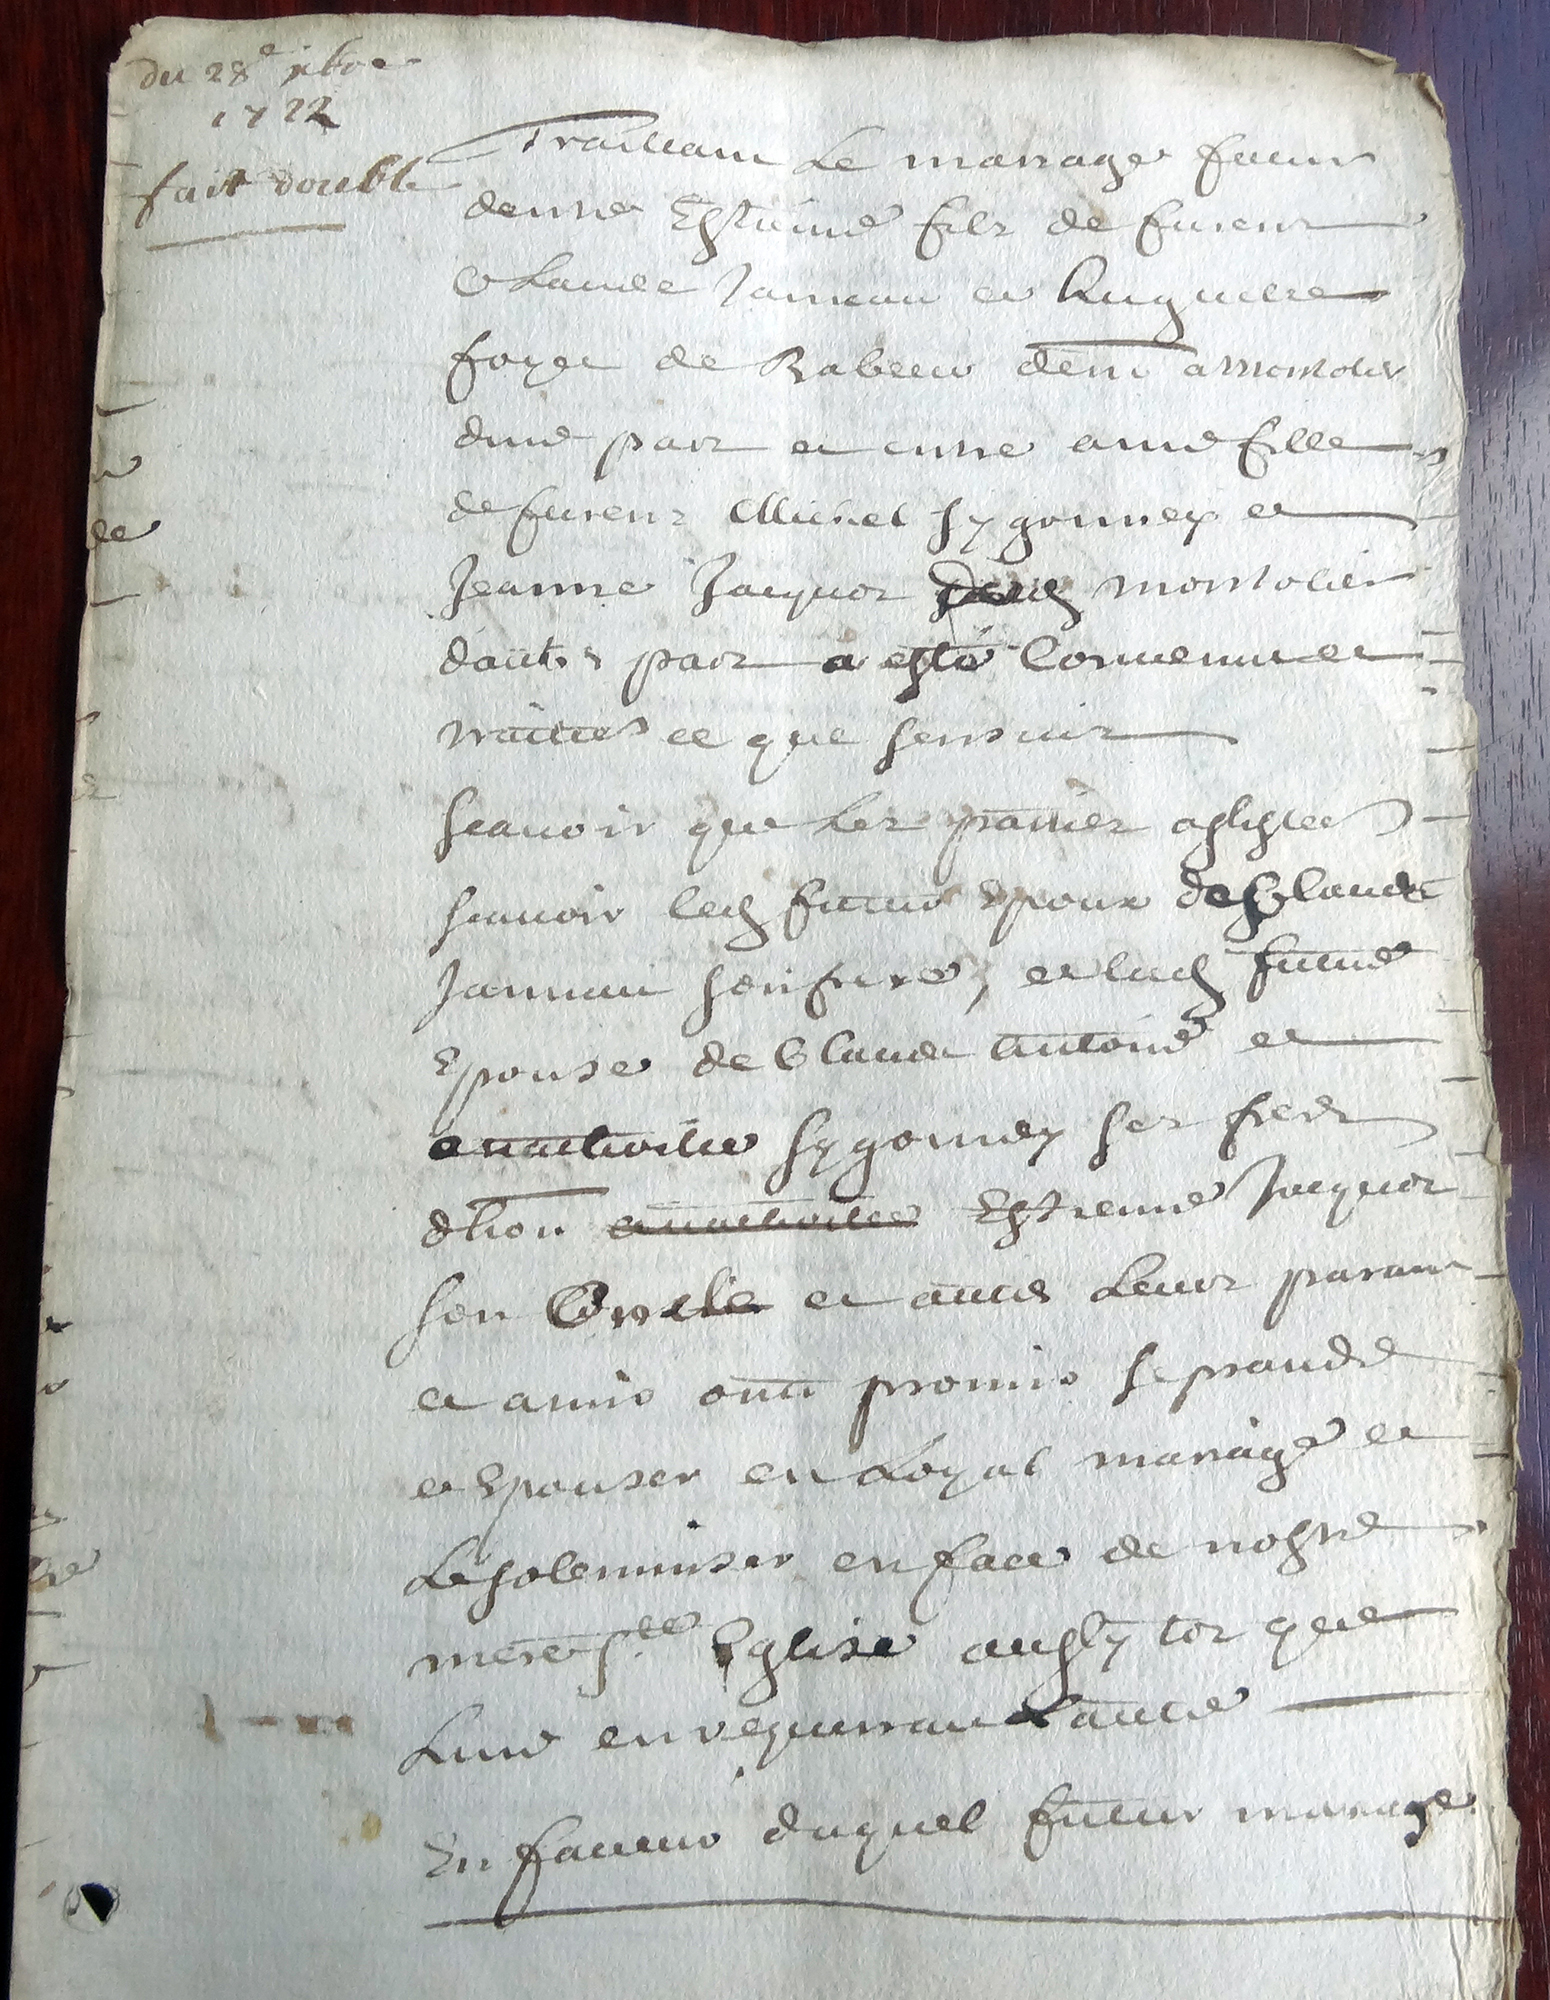 du 28e xbre
1722
fait double
Traittant Le mariage futur
dentre Estienne fils de furent
Claude Jannau et huguette
foyer de Rabeur dem.t a Montolier
dune part et entre anne fille
de furent Michel sygonney et
Jeanne Jacquot dud Montolier
dautre part a esté Conuenu et
traitté ce que sensuit
scauoir que Les parties assistees
scauoir led futur Epoux de Claude
Jannau son frere, et lad future
Epouse de Claude antoine et
sygonney ses freres
dhon Estienne Jacquot
son Oncle et autres Leurs parans
et amis ont promis se prandre
et Epouser en Loyal mariage et
Le solemniser en face de nostre
mere s.te Eglise aussy tot que
Lune en requerrat Lautre
En faueur duquel futur mariage